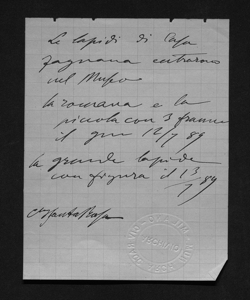 Le lapidi di Casa
zagnana entrarono
nel Museo
la romana e la
piccola con 3 framm
il giu 12/7 89
la grande lapide
con figura il 13
/7 89